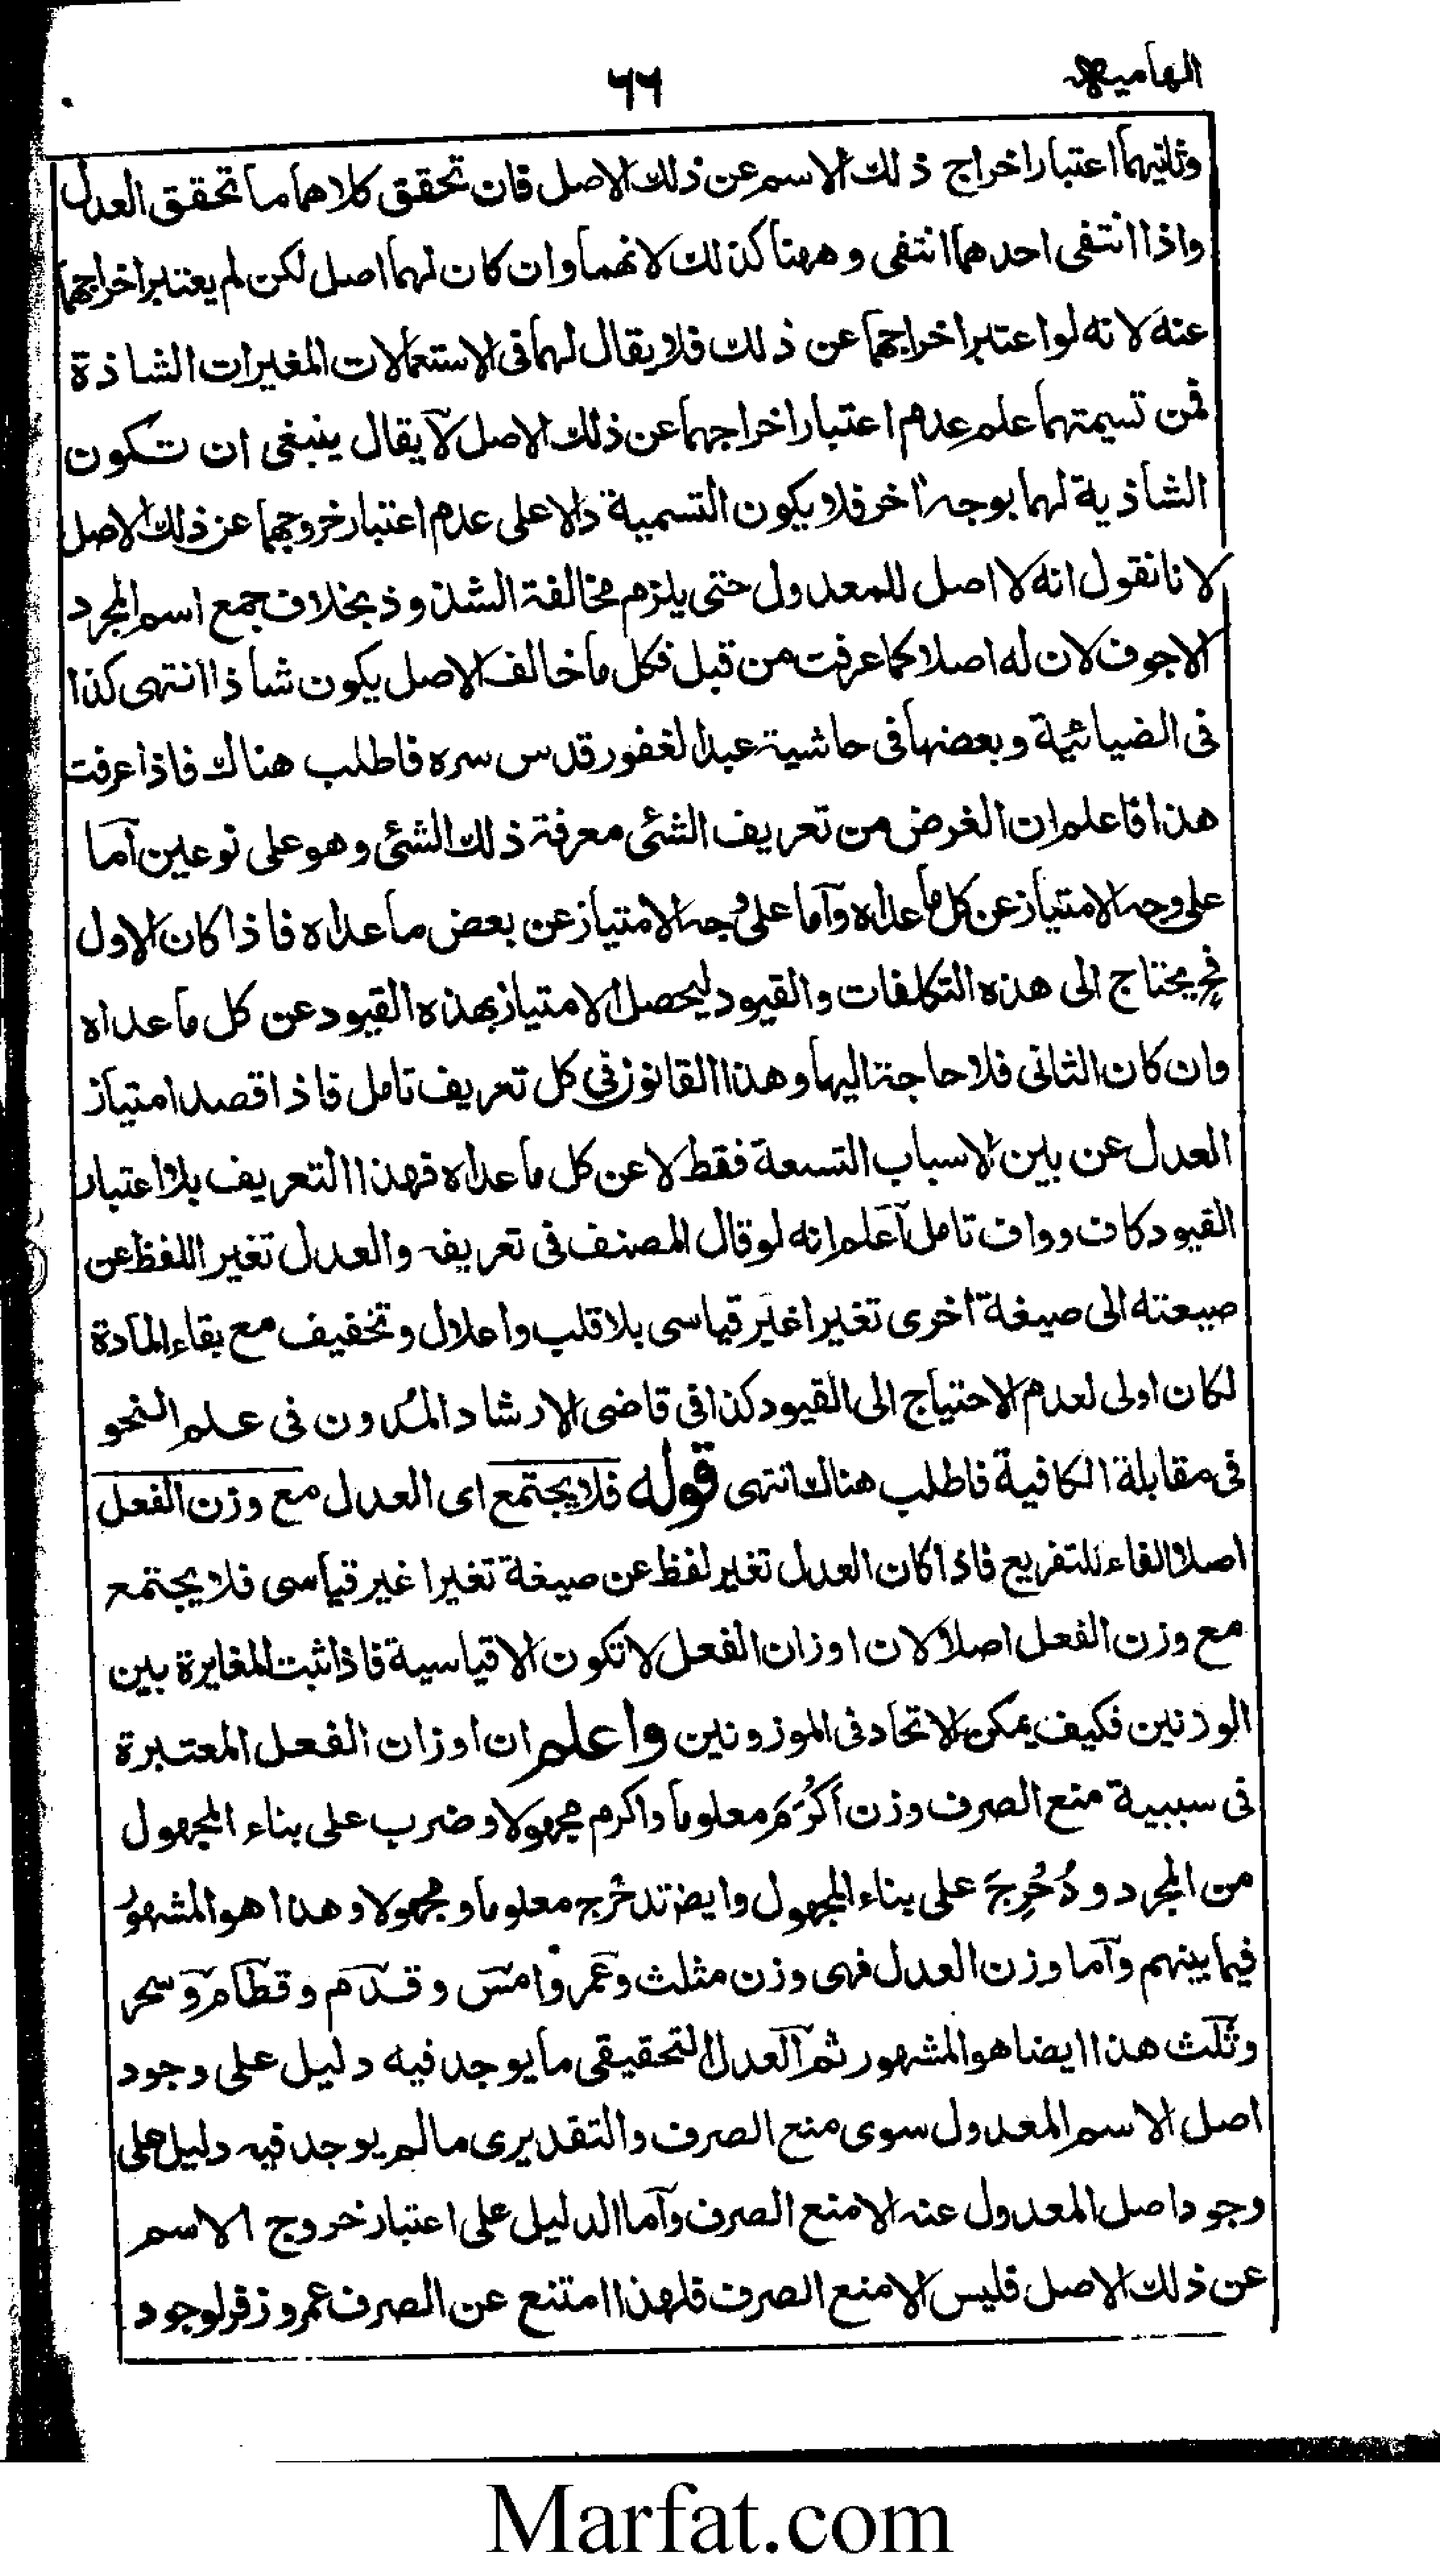 الهاميه
٦٦
وثانيهما اعتبار اخراج ذلك الاسم عن ذلك الاصل فان تحقق كلاهما ما تحقق العدل
واذا انتفى احدهما انتفى وههنا كذلك لانهما وان كان لهما اصل لكن لم يعتبر اخراجهما
عنه لانه لو اعتبر اخراجهما عن ذلك فلا يقال لهما فى الاستعمالات المغيرات الشاذة
فمن تسيمتهما علم عدم اعتبار اخراجهما عن ذلك الاصل لا يقال ينبغى ان تكون
الشاذية لهما بوجه اخر فلا يكون التسمية دالا على عدم اعتبار خروجهما عن ذلك الاصل
لانا نقول انه لا اصل للمعدول حتى يلزم مخالفة الشذوذ بخلاف جمع اسم المجرد
الاجوف لان له اصلا كما عرفت من قبل فكل ما خالف الاصل يكون شاذا انتهى كذا
فى الضيائية وبعضها فى حاشية عبد الغفور قدس سره فاطلب هناك فاذا عرفت
هذا فاعلم ان الغرض من تعريف الشئى معرفة ذلك الشئى وهو على نوعين اما
على وجه الامتياز عن كل ما عداه واما على وجه الامتياز عن بعض ما عداه فاذا كان الاول
فح يحتاج الى هذه التكلفات والقيود ليحصل الامتياز بهذه القيود عن كل ما عداه
وان كان الثانى فلا حاجة اليها وهذا القانون فى كل تعريف تامل فاذا قصد امتياز
العدل عن بين الاسباب التسعة فقط لا عن كل ما عداه فهذا التعريف بلا اعتبار
القيود كاف وواف تامل اعلم انه لو قال المصنف فى تعريفه والعدل تغير اللفظ عن
صيعته الى صيغة اخرى تغيرا غير قياسى بلا قلب واعلال وتخفيف مع بقاء المادة
لكان اولى لعدم الاحتياج الى القيود كذا فى قاضى الارشاد المدون فى علم النحو
فى مقابلة الكافية فاطلب هناك انتهى قوله فلا يجتمع اى العدل مع وزن الفعل
اصلا الفاء للتفريع فاذا كان العدل تغير لفظ عن صيغة تغيرا غير قياسى فلا يجتمع
مع وزن الفعل اصلا لان اوزان الفعل لا تكون الا قياسية فاذا ثبت المغايرة بين
الوزنين فكيف يمكن الاتحاد فى الموزونين واعلم ان اوزان الفعل المعتبرة
فى سببية منع الصرف وزن اَكْرَمَ معلوما واكرم مجهولا وضرب على بناء المجهول
من المجرد و دُحْرِجَ على بناء المجهول وايضا تدحرج معلوما ومجهولا وهذا هو المشهور
فيما بينهم واما وزن العدل فهى وزن مثلث وعمر وامس وقدم وقطام وسحر
وثلث هذا ايضا هو المشهور ثم العدل التحقيقى ما يوجد فيه دليل على وجود
اصل الاسم المعدول سوى منع الصرف والتقديرى ما لم يوجد فيه دليل على
وجود اصل المعدول عنه الا منع الصرف واما الدليل على اعتبار خروج الاسم
عن ذلك الاصل فليس الا منع الصرف فلهذا امتنع عن الصرف عمر وزفر لوجود
Marfat.com